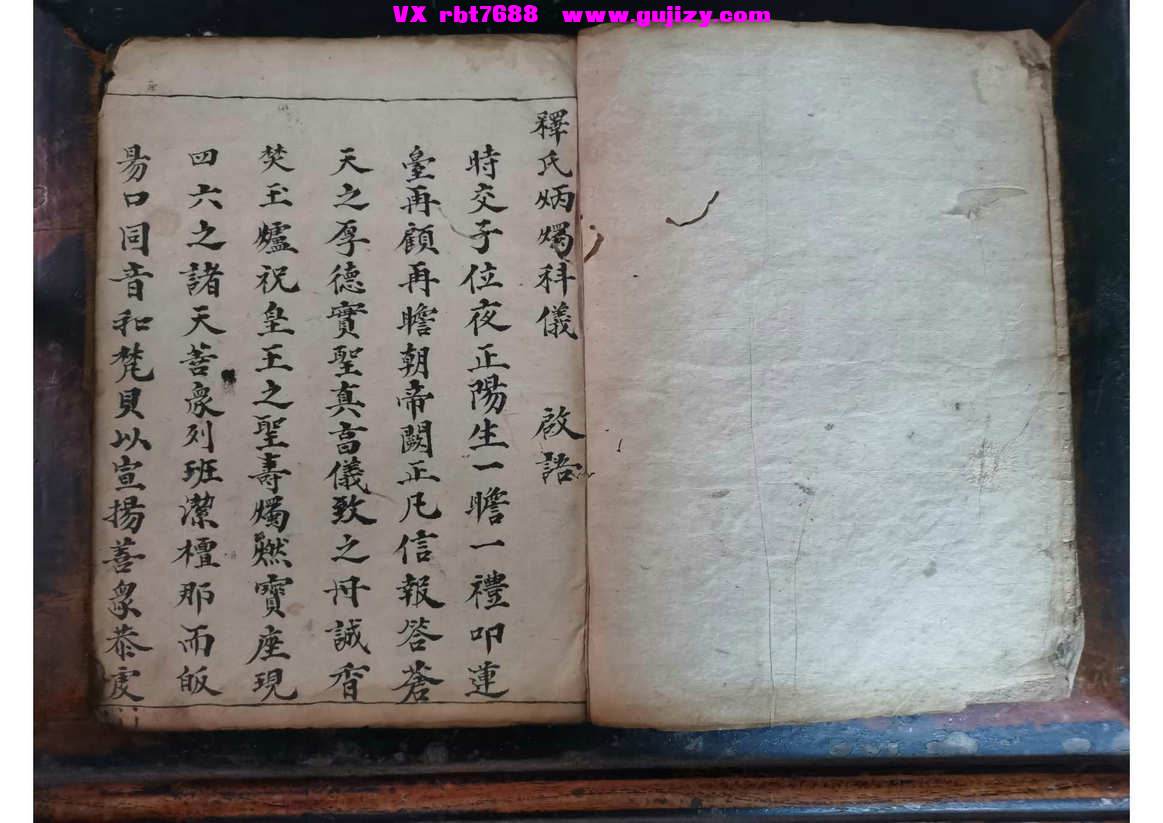 VX rbt7688 www.gujizy.com
釋氏炳燭科儀 啟語
時交子位夜正陽生一瞻一禮叩蓮
臺再顧再瞻朝帝闕正凡信報答蒼
天之厚德實聖真高儀致之丹誠香
焚玉爐祝皇王之聖壽燭燃寶座現
四六之諸天菩衆列班潔檀那而皈
昜口同音和梵貝以宣揚善衆恭虔